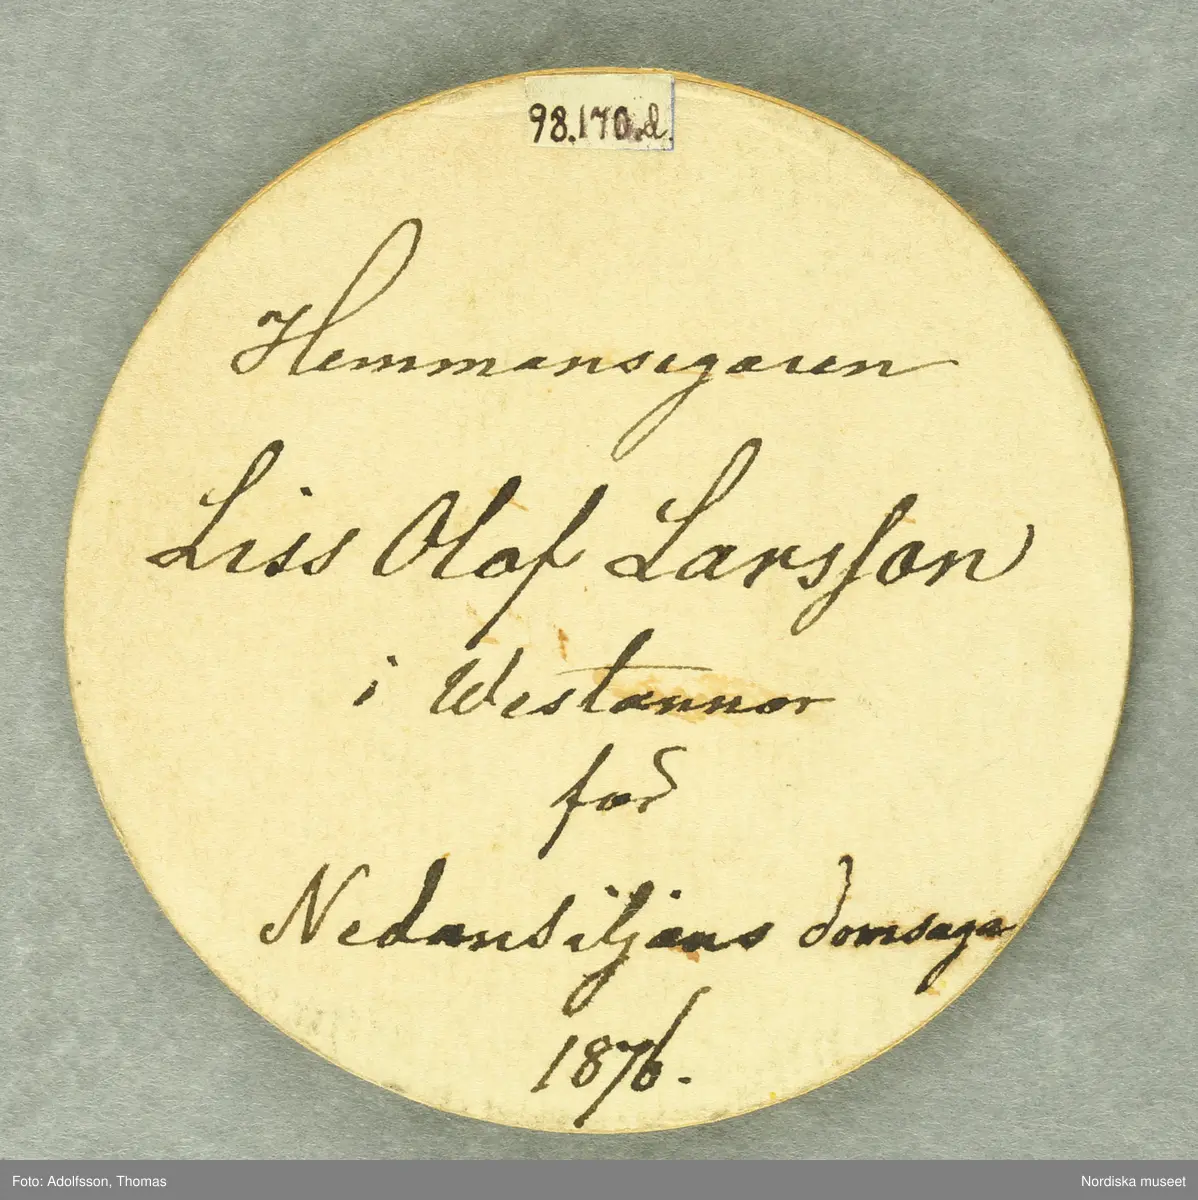 98.170.d.
Hemmansegaren
Liss Olof Larsson
i Westannor
för
Nedansiljans domsaga
1876.
Foto: Adolfsson, Thomas
Nordiska museet